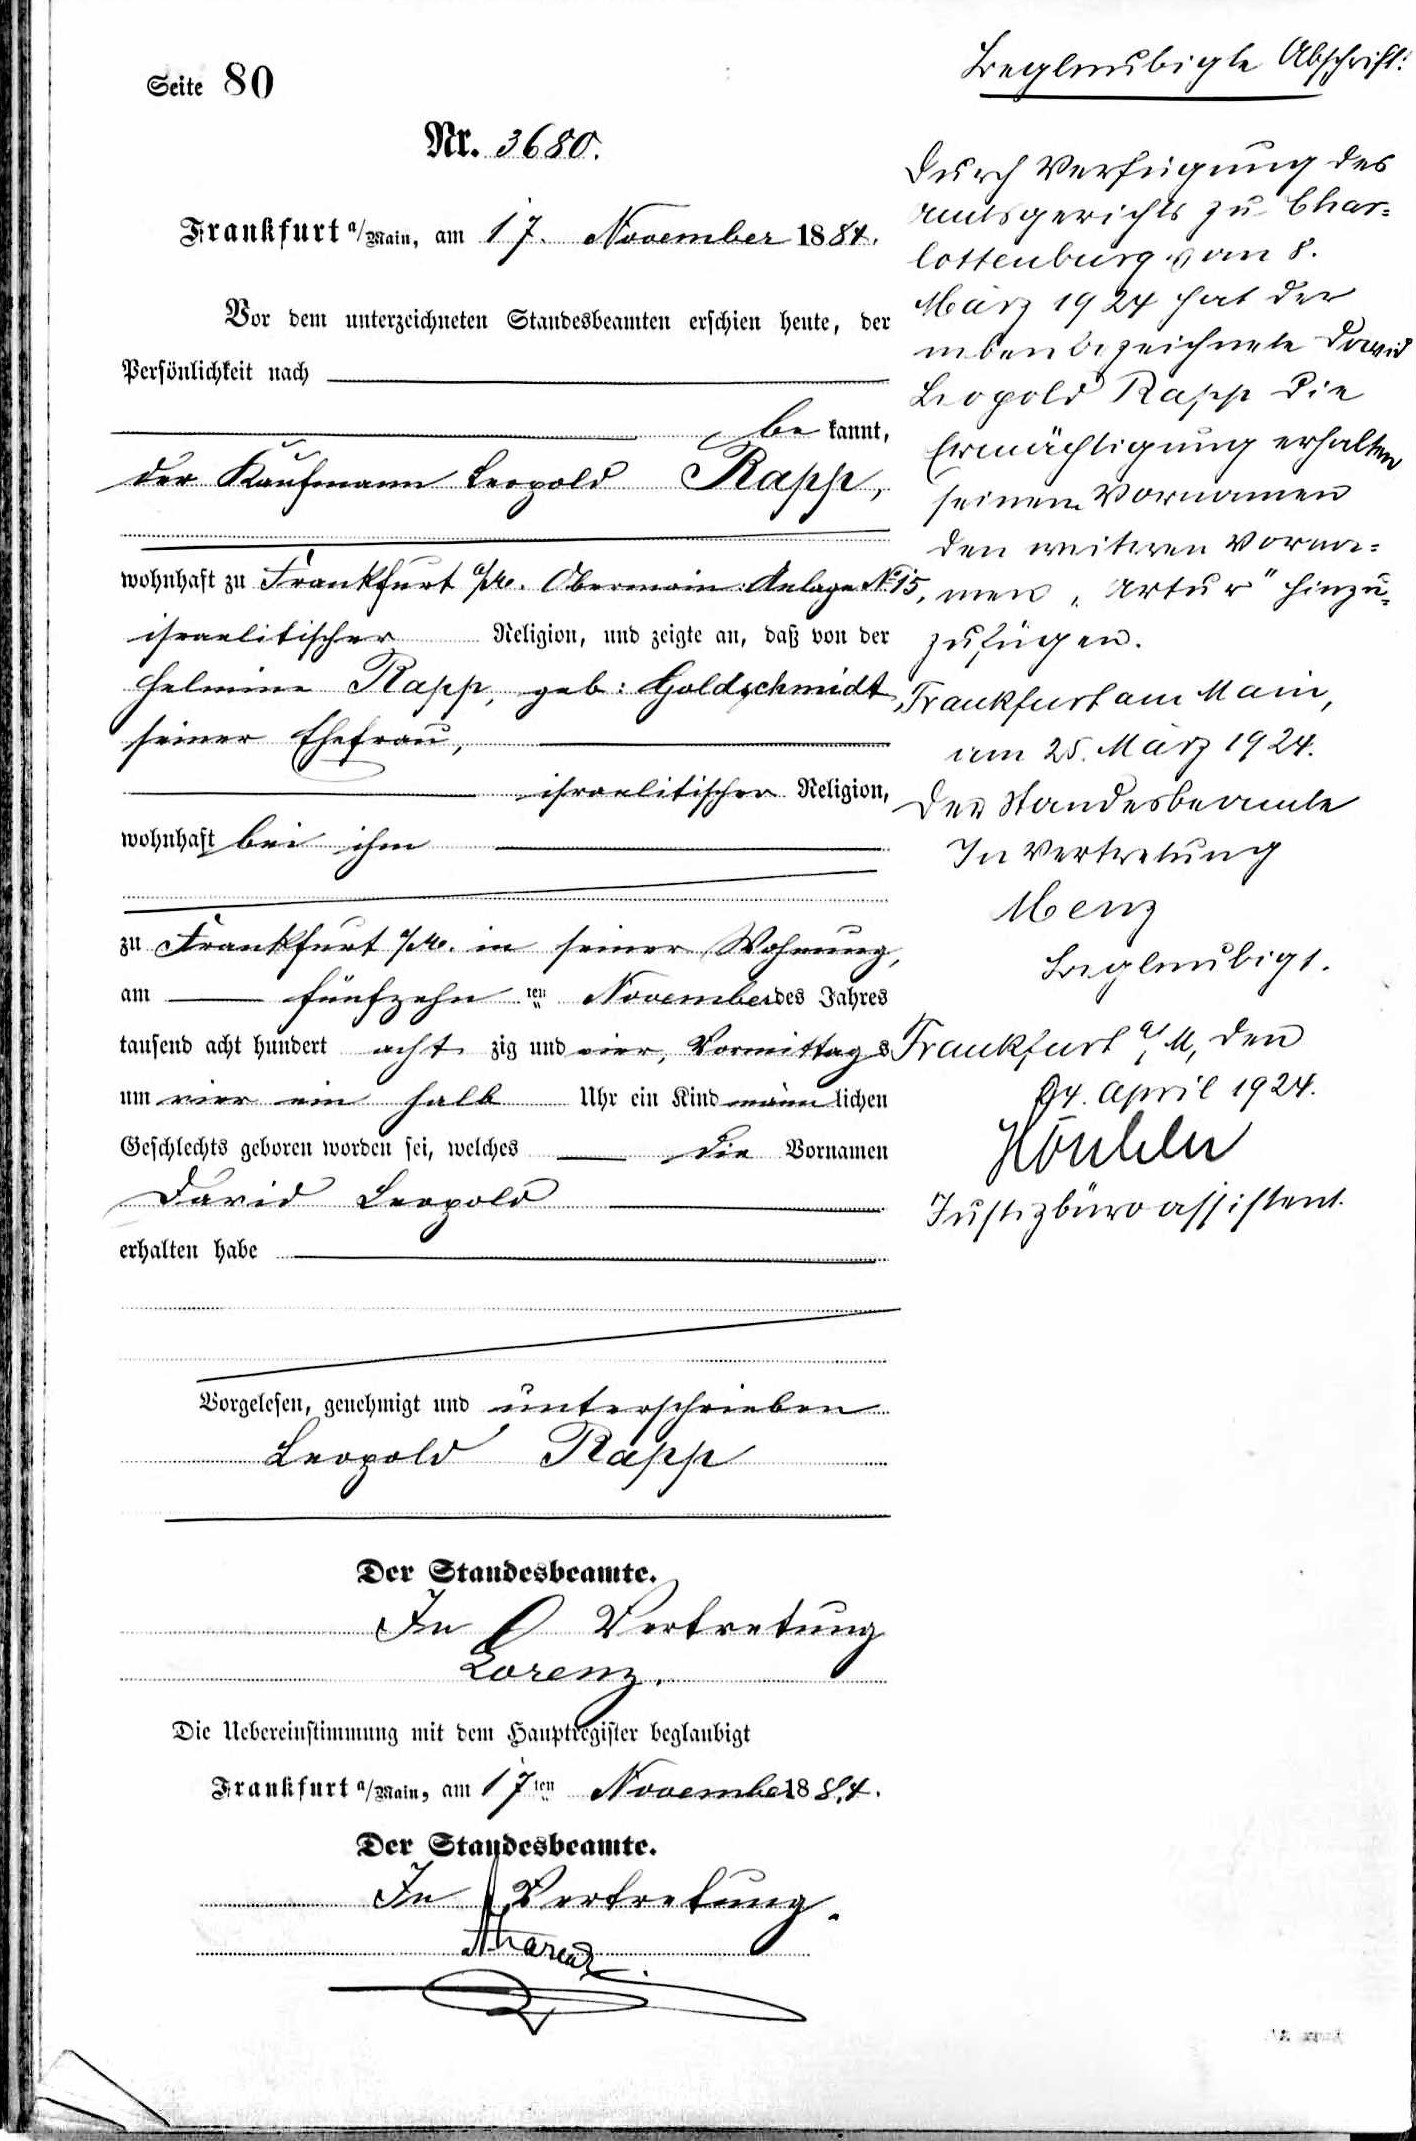 Seite 80
Nr. 3680.
Frankfurt a/Main, am 17. November 1884.
Vor dem unterzeichneten Standesbeamten erschien heute, der
Persönlichkeit nach
be kannt,
der Kaufmann Leopold Rapp,
wohnhaft zu Frankfurt a/M. Obermain-Anlage No 15,
israelitischer Religion, und zeigte an, daß von der
Helmine Rapp, geb: Goldschmidt,
seiner Ehefrau,
israelitischer Religion,
wohnhaft bei ihm
zu Frankfurt a/M. in seiner Wohnung,
am fünfzehn ten November des Jahres
tausend acht hundert acht zig und vier, Vormittags
um vier ein halb Uhr ein Kind männlichen
Geschlechts geboren worden sei, welches die Vornamen
David Leopold
erhalten habe
Vorgelesen, genehmigt und unterschrieben
Leopold Rapp
Der Standesbeamte.
In Vertretung
Lorenz.
Die Uebereinstimmung mit dem Hauptregister beglaubigt
Frankfurt a/Main, am 17ten November 1884.
Der Standesbeamte.
In Vertretung.
Beglaubigte Abschrift:
Durch Verfügung des
Amtsgerichts zu Char-
lottenburg vom 8.
März 1924 hat der
nebenbezeichnete David
Leopold Rapp die
Ermächtigung erhalten
seinen Vornamen
den weiteren Vorna-
men "Artur" hinzu-
zufügen.
Frankfurt am Main,
am 25. März 1924.
Der Standesbeamte
In Vertretung
Menz
Beglaubigt.
Frankfurt a/M, den
April 1924.
Justizbüroassistent.